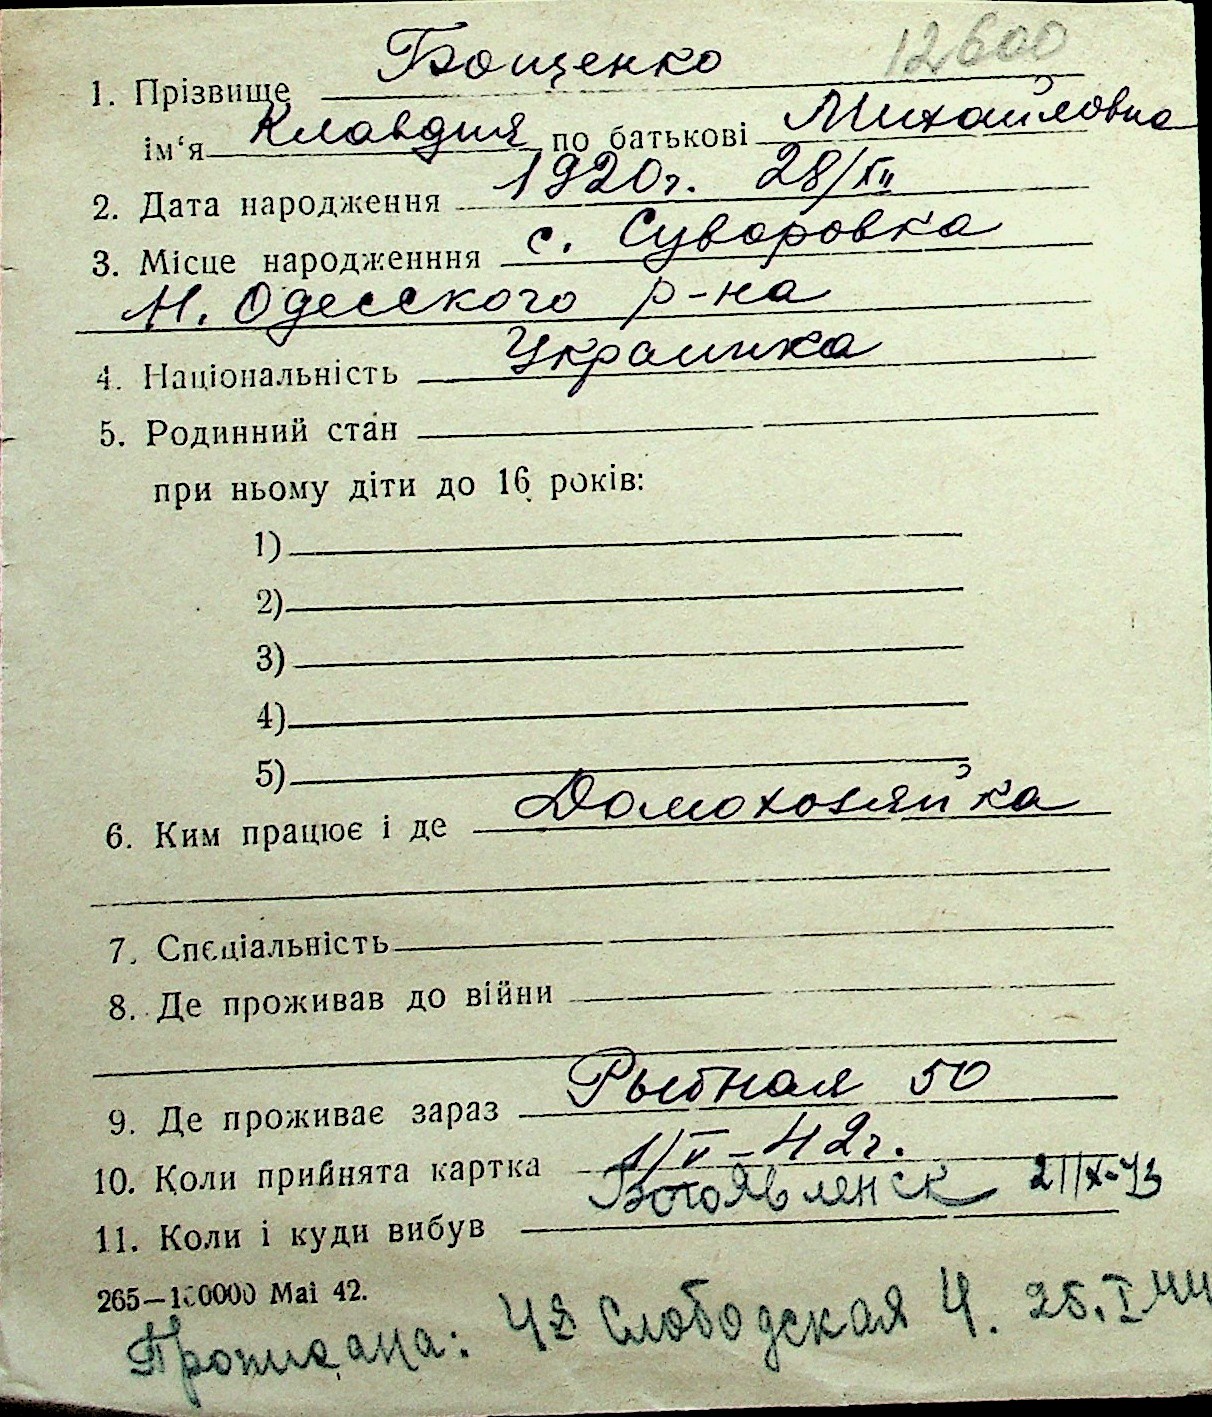 12600
1. Прізвище Бощенко
ім‘я Клавдия по батькові Михайловна
2. Дата народження 1920г. 28/XII
3. Місце народженння с. Суворовка
Н. Одесского р-на
4. Національність Украинка
5. Родинний стан
при ньому діти до 16 років:
1)
2)
3)
4)
5)
6. Ким працює і де Домохозяйка
7. Спеціальність
8. Де проживав до війни
9. Де проживає зараз Рыбная 50
10. Коли прийнята картка 1/II-42г.
11. Коли і куди вибув Богоявленск 21/IX-43
265—100000 Mai 42.
Прописана: 4я Слободская 4. 25.I 44